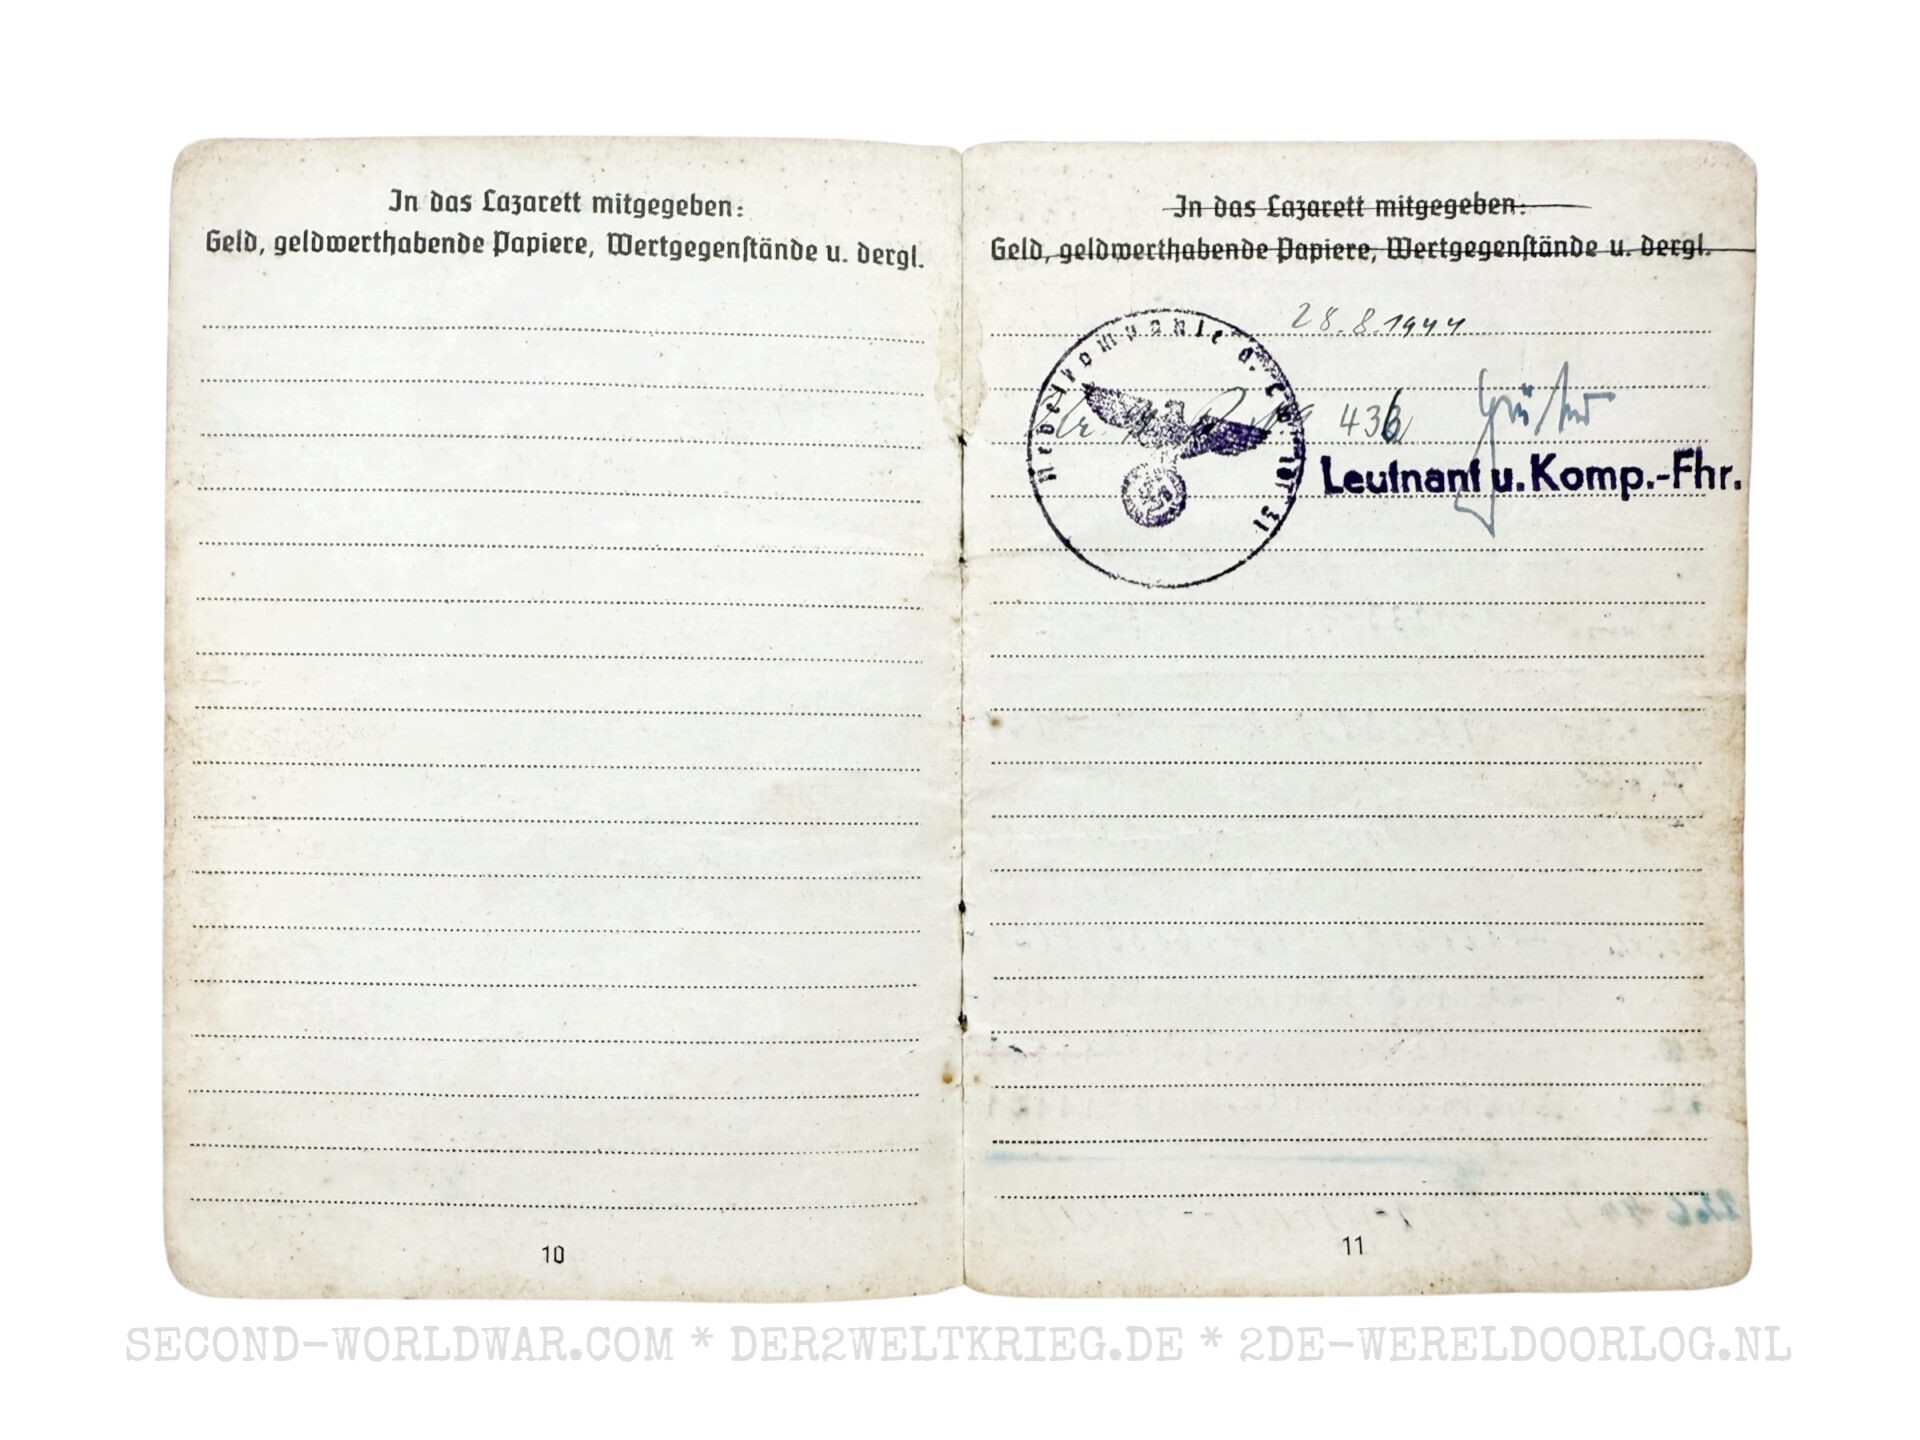 In das Lazarett mitgegeben:
Geld, geldwerthabende Papiere, Wertgegenstände u. dergl.
10
In das Lazarett mitgegeben:
Geld, geldwerthabende Papiere, Wertgegenstände u. dergl.
28.8.1944
Leutnant u. Komp.-Fhr.
11
SECOND-WORLDWAR.COM * DER2WELTKRIEG.DE * 2DE-WERELDOORLOG.NL